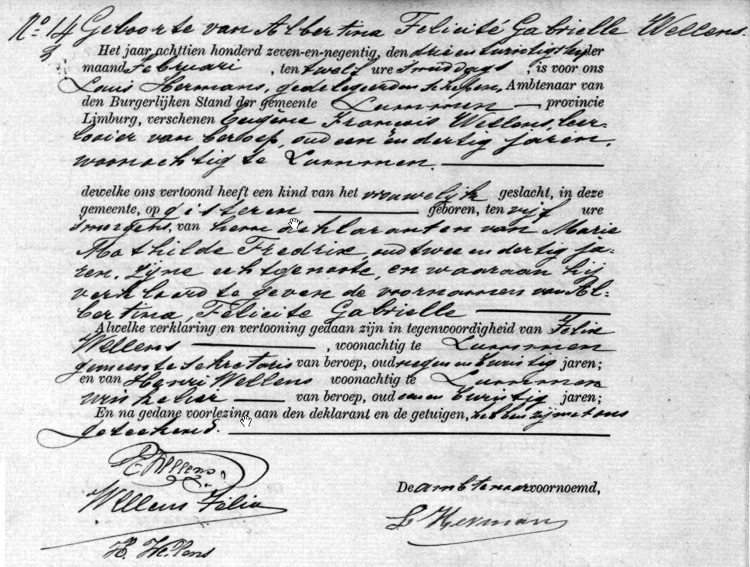 No. 14 Geboorte van Albertina Felicité Gabrielle Wellens.
Het jaar achttien honderd zeven-en-negentig, den drie en twintigsten der
maand Februari, ten twelf ure smiddags, is voor ons
Louis Hermans, gedelegeerden schepen, Ambtenaar van
den Burgerlijken Stand der gemeente Lummen provincie
Limburg, verschenen Eugène François Wellens, leer-
looier van beroep, oud een en dertig jaren,
woonachtig te Lummen.
dewelke ons vertoond heeft een kind van het vrouwelijk geslacht, in deze
gemeente, op gisteren geboren, ten vijf ure
smorgens, van hem deklarant en van Marie
Mathilde Fredrix, oud twee en dertig ja-
ren, zijne echtgenoote, en waaraan hij
verklaard te geven de voornamen van Al-
bertina, Felicité Gabrielle
Alwelke verklaring en vertooning gedaan zijn in tegenwoordigheid van Felix
Wellens, woonachtig te Lummen
gemeente sekretaris van beroep, oud negen en twintig jaren;
en van Henri Wellens woonachtig te Lummen
van beroep, oud een en twintig jaren;
En na gedane voorlezing aan den deklarant en de getuigen, hebben zij met ons
geteekend.
E Wellens
Wellens Felix
De ambtenaar voornoemd,
L Herman
H. Wellens